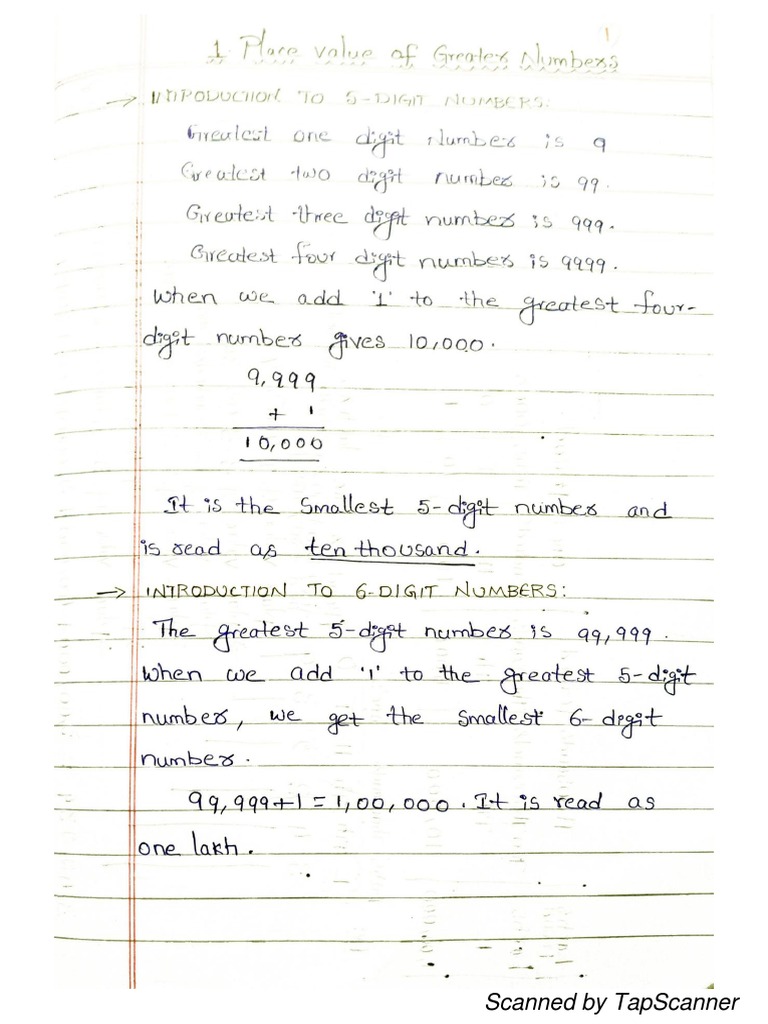 1
1. Place value of Greater Numbers
→ INTRODUCTION TO 5-DIGIT NUMBERS:
Greatest one digit Number is 9
Greatest two digit number is 99.
Greatest three digit number is 999.
Greatest four digit number is 9999.
When we add '1' to the greatest four-
digit number gives 10,000.
9,999
+ 1
10,000
It is the smallest 5-digit number and
is read as ten thousand.
→ INTRODUCTION TO 6-DIGIT NUMBERS:
The greatest 5-digit number is 99,999.
When we add '1' to the greatest 5-digit
number, we get the smallest 6-digit
number.
99,999+1=1,00,000. It is read as
one lakh.
Scanned by TapScanner